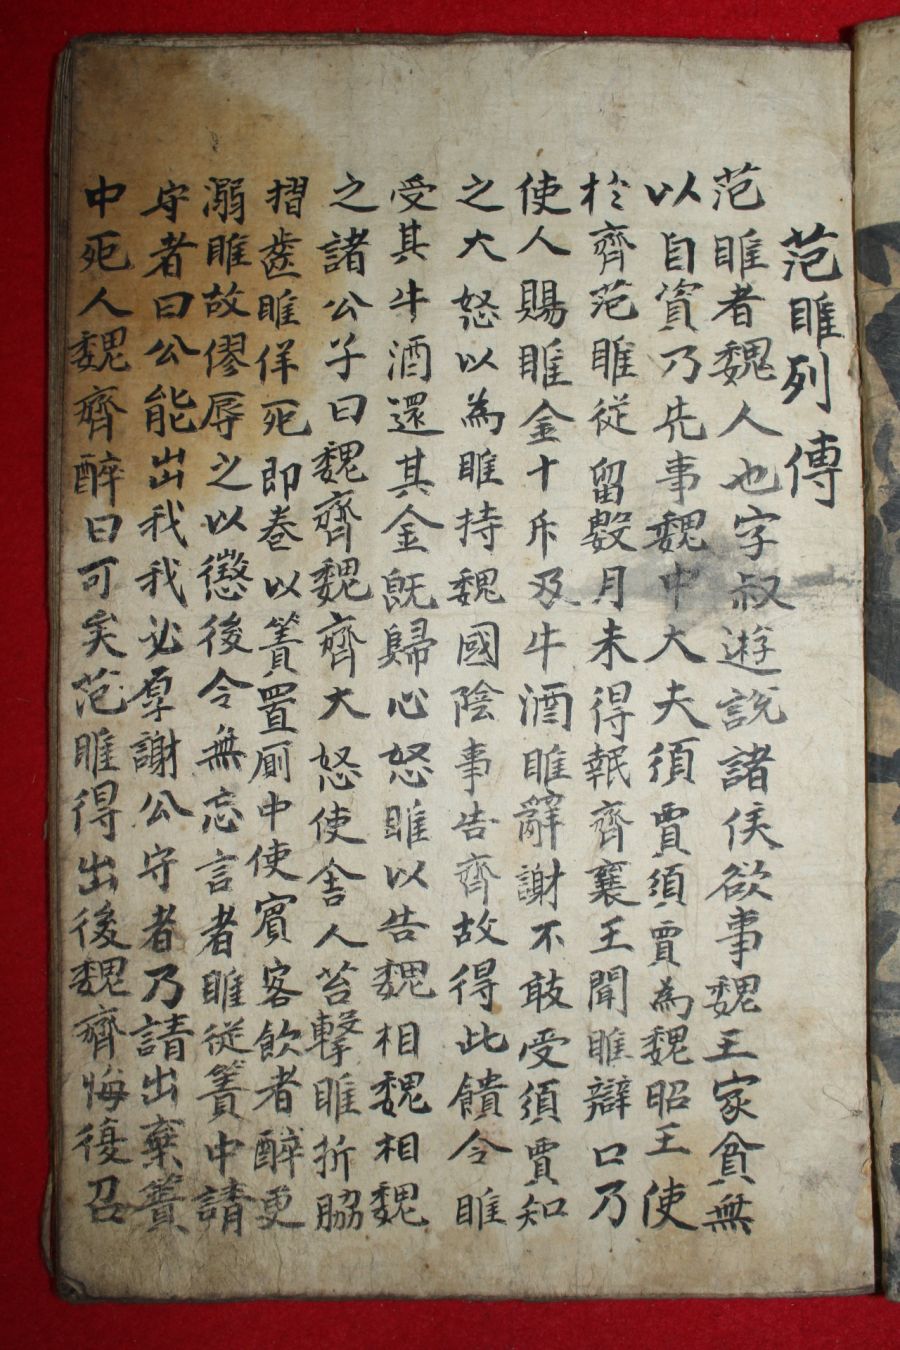 范睢列傳
范睢者魏人也字叔遊說諸侯欲事魏王家貧無
以自資乃先事魏中大夫須賈須賈為魏昭王使
於齊范睢從留數月未得報齊襄王聞睢辯口乃
使人賜睢金十斤及牛酒睢辭謝不敢受須賈知
之大怒以為睢持魏國陰事告齊故得此饋令睢
受其牛酒還其金既歸心怒睢以告魏相魏相魏
之諸公子曰魏齊魏齊大怒使舍人笞擊睢折脇
摺齒睢佯死即卷以簀置厠中使賓客飲者醉更
溺睢故僇辱之以懲後令無忘言者睢從簀中請
守者曰公能出我我必厚謝公守者乃請出棄簀
中死人魏齊醉曰可矣范睢得出後魏齊悔復召